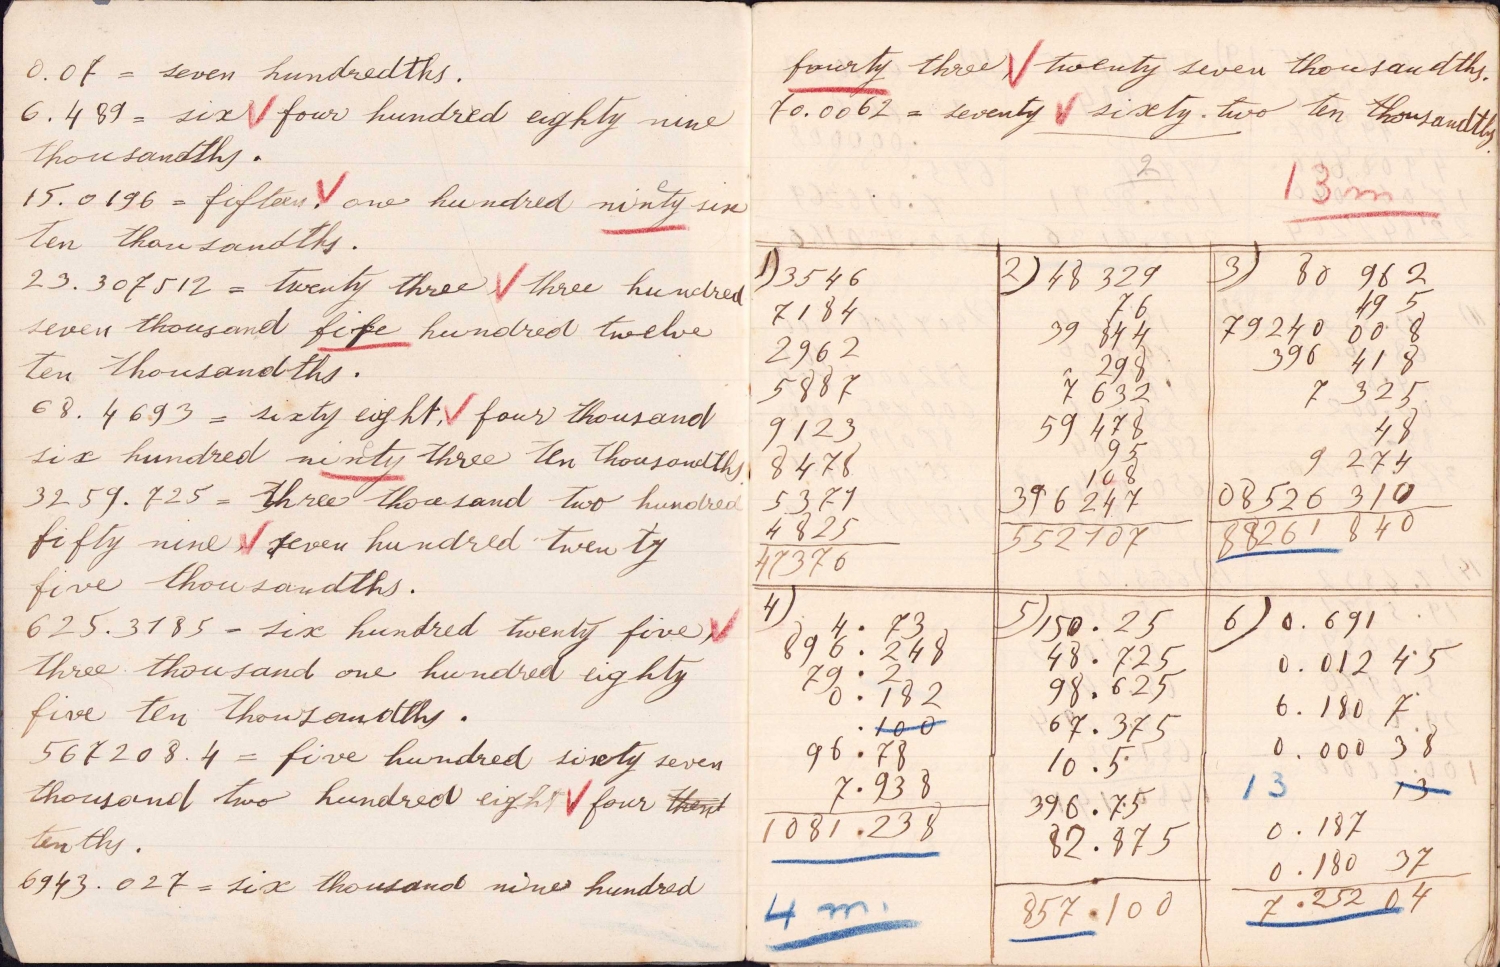 0.07 = seven hundredths.
6.489 = six four hundred eighty nine
thousandths.
15.0196 = fifteen, one hundred ninty six
ten thousandths.
23.307512 = twenty three, three hundred
seven thousand fife hundred twelve
ten thousandths.
68.4693 = sixty eight, four thousand
six hundred ninty three ten thousandths.
3259.725 = three thousand two hundred
fifty nine, seven hundred twenty
five thousandths.
625.3185 = six hundred twenty five,
three thousand one hundred eighty
five ten thousandths.
567208.4 = five hundred sixty seven
thousand two hundred eight four
tenths.
6943.027 = six thousand nine hundred
fourty three, twenty seven thousandths.
70.0062 = seventy sixty-two ten thousandths
13 m
1) 3546
7184
2962
5887
9123
8478
5371
4825
47376
2) 48 329
76
39 844
298
7 632
59 478
95
108
396 247
552107
3) 80 962
495
79240 008
396 418
7 325
48
9 274
08526 310
88261 840
4) 4.73
896.248
79.2
0.182
.100
96.78
7.938
1081.238
4 m.
5) 150.25
48.725
98.625
67.375
10.5
396.75
82.875
857.100
6) 0.691
0.012 45
6.180 7
0.000 38
13 13
0.187
0.180 37
7.252 04